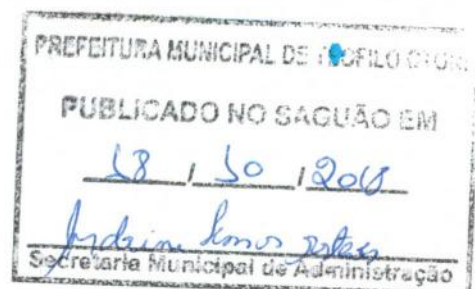 PREFEITURA MUNICIPAL DE TEOFILO OTONI
PUBLICADO NO SAGUÃO EM
18 / 10 / 2018
Secretaria Municipal de Administração